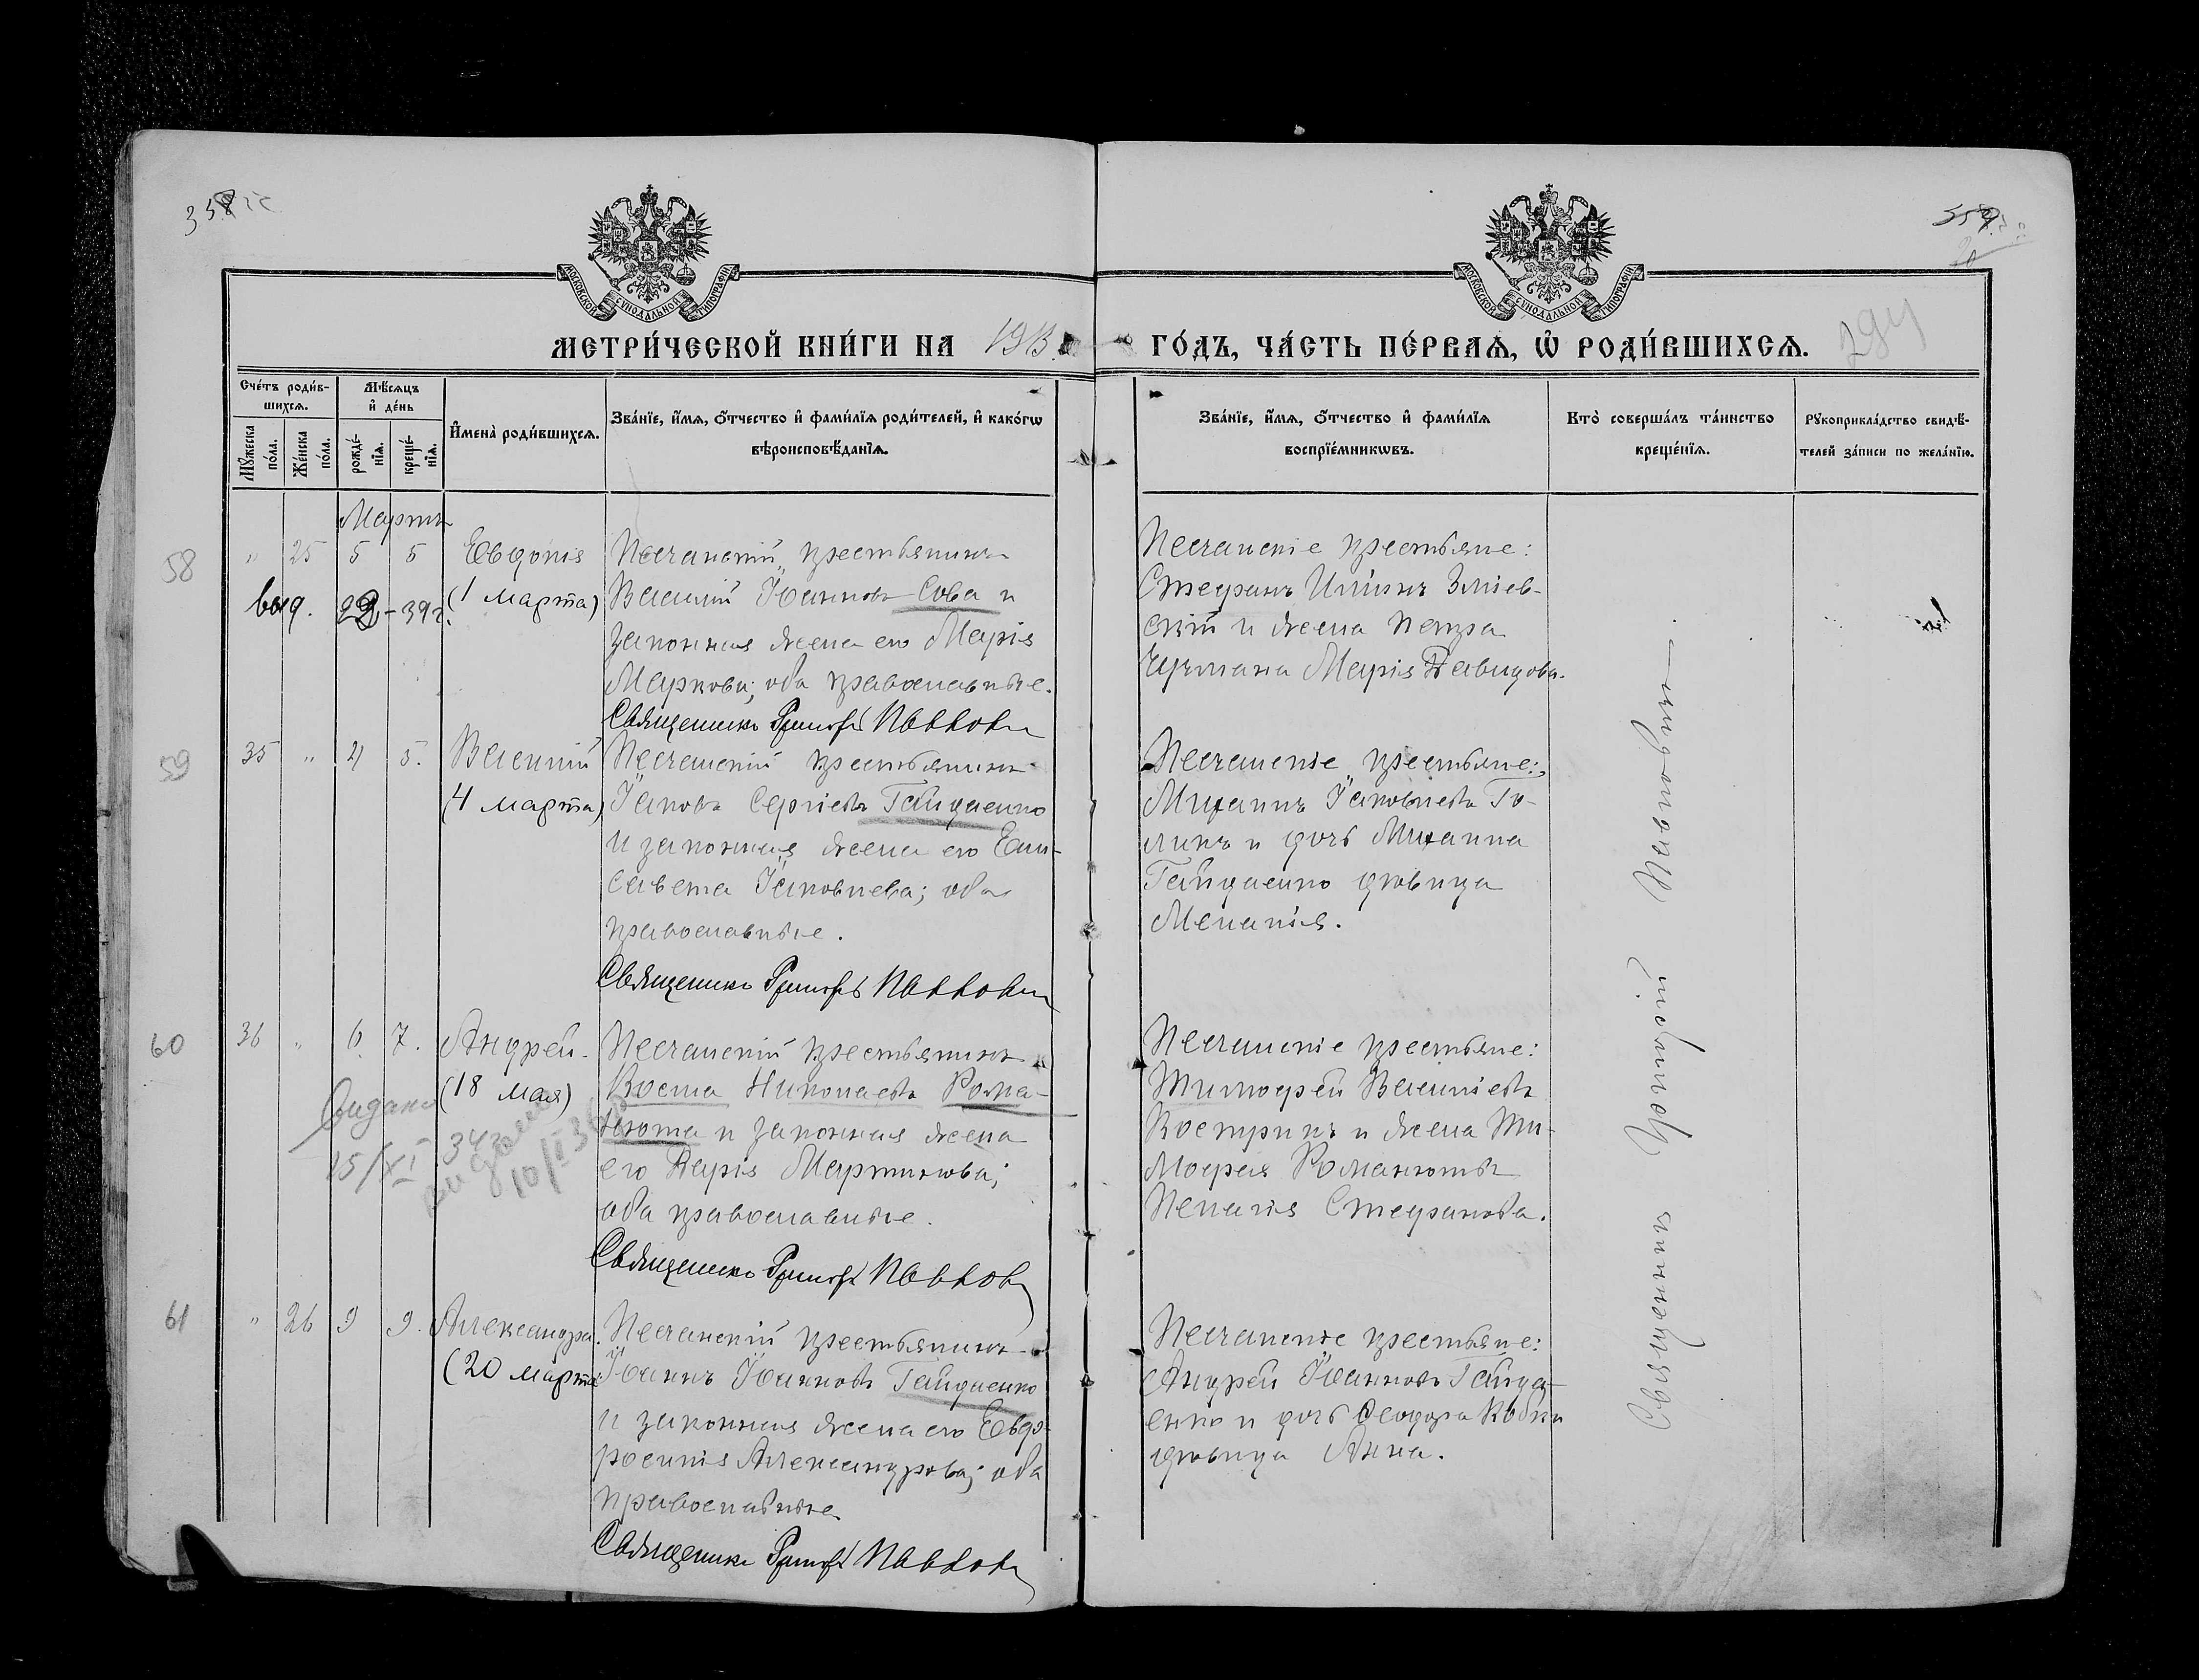 358
359
294
МОСКОВСКОЙ СУНОДАЛЬНОЙ ТИПОГРАФІИ
МОСКОВСКОЙ СУНОДАЛЬНОЙ ТИПОГРАФІИ
МЕТРИ́ЧЕСКОЙ КНИ́ГИ НА 1913
ГО́ДЪ, ЧА́СТЬ ПЕ́РВАЯ, Ѡ РОДИ́ВШИХСЯ.
Сче́тъ роди́в-
шихся.
Мѣ́сяцъ
и҆ де́нь
Мꙋ́жеска по́ла.
Же́нска по́ла.
рожде́-
нїя.
креще́-
нїя.
И҆мена̀ роди́вшихся.
Зва́нїе, и҆́мя, ѻ҆́тчество и҆ фами́лїя роди́телей, и҆ како́гѡ
вѣроисповѣ́данїя.
Зва́нїе, и҆́мя, ѻ҆́тчество и҆ фами́лїя
воспрїе́мникѡвъ.
Кто̀ соверша́лъ та́инство
креще́нїя.
Рꙋкоприкла́дство свидѣ́-
телей за́писи по жела́нїю.
Мартъ
58 " 25 5 5 Евдокія
(1 марта)
выд. 22 - 39 г.
Песчанскій крестьянинъ
Василій Іоанновъ Сова и
законная жена его Марія
Маркова; оба православные.
Священникъ Григорій Павловъ
Песчанскіе крестьяне:
Стефанъ Иліинъ Зміев-
скій и жена Петра
Чучмана Марія Давидова.
59 35 " 4 5. Василій
(4 марта)
Песчанскій крестьянинъ
Іаковъ Сергіевъ Гайдаенко
и законная жена его Ели-
савета Іаковлева; оба
православные.
Священникъ Григорій Павловъ
Песчанскіе крестьяне:
Михаилъ Іаковлевъ Го-
ликъ и дочь Михаила
Гайдаенко дѣвица
Меланія.
60 36 " 6. 7. Андрей.
(18 мая)
Видано
15/XI 34 г
видано
10/II 36
Песчанскій крестьянинъ
Косма Николаевъ Рома-
нюта и законная жена
его Дарія Мартинова;
оба православные.
Священникъ Григорій Павловъ
Песчанскіе крестьяне:
Тимофей Василіевъ
Кострикъ и жена Ти-
мофея Романюты
Пелагія Стефанова.
61 " 26 9 9. Александра.
(20 марта)
Песчанскій крестьянинъ
Іоаннъ Іоанновъ Гайдаенко
и законная жена его Евф-
росинія Александрова; оба
православные
Священникъ Григорій Павловъ
Песчанскіе крестьяне:
Андрей Іоанновъ Гайда-
енко и дочь Ѳеодора
дѣвица Анна.
Священникъ Григорій Павловъ